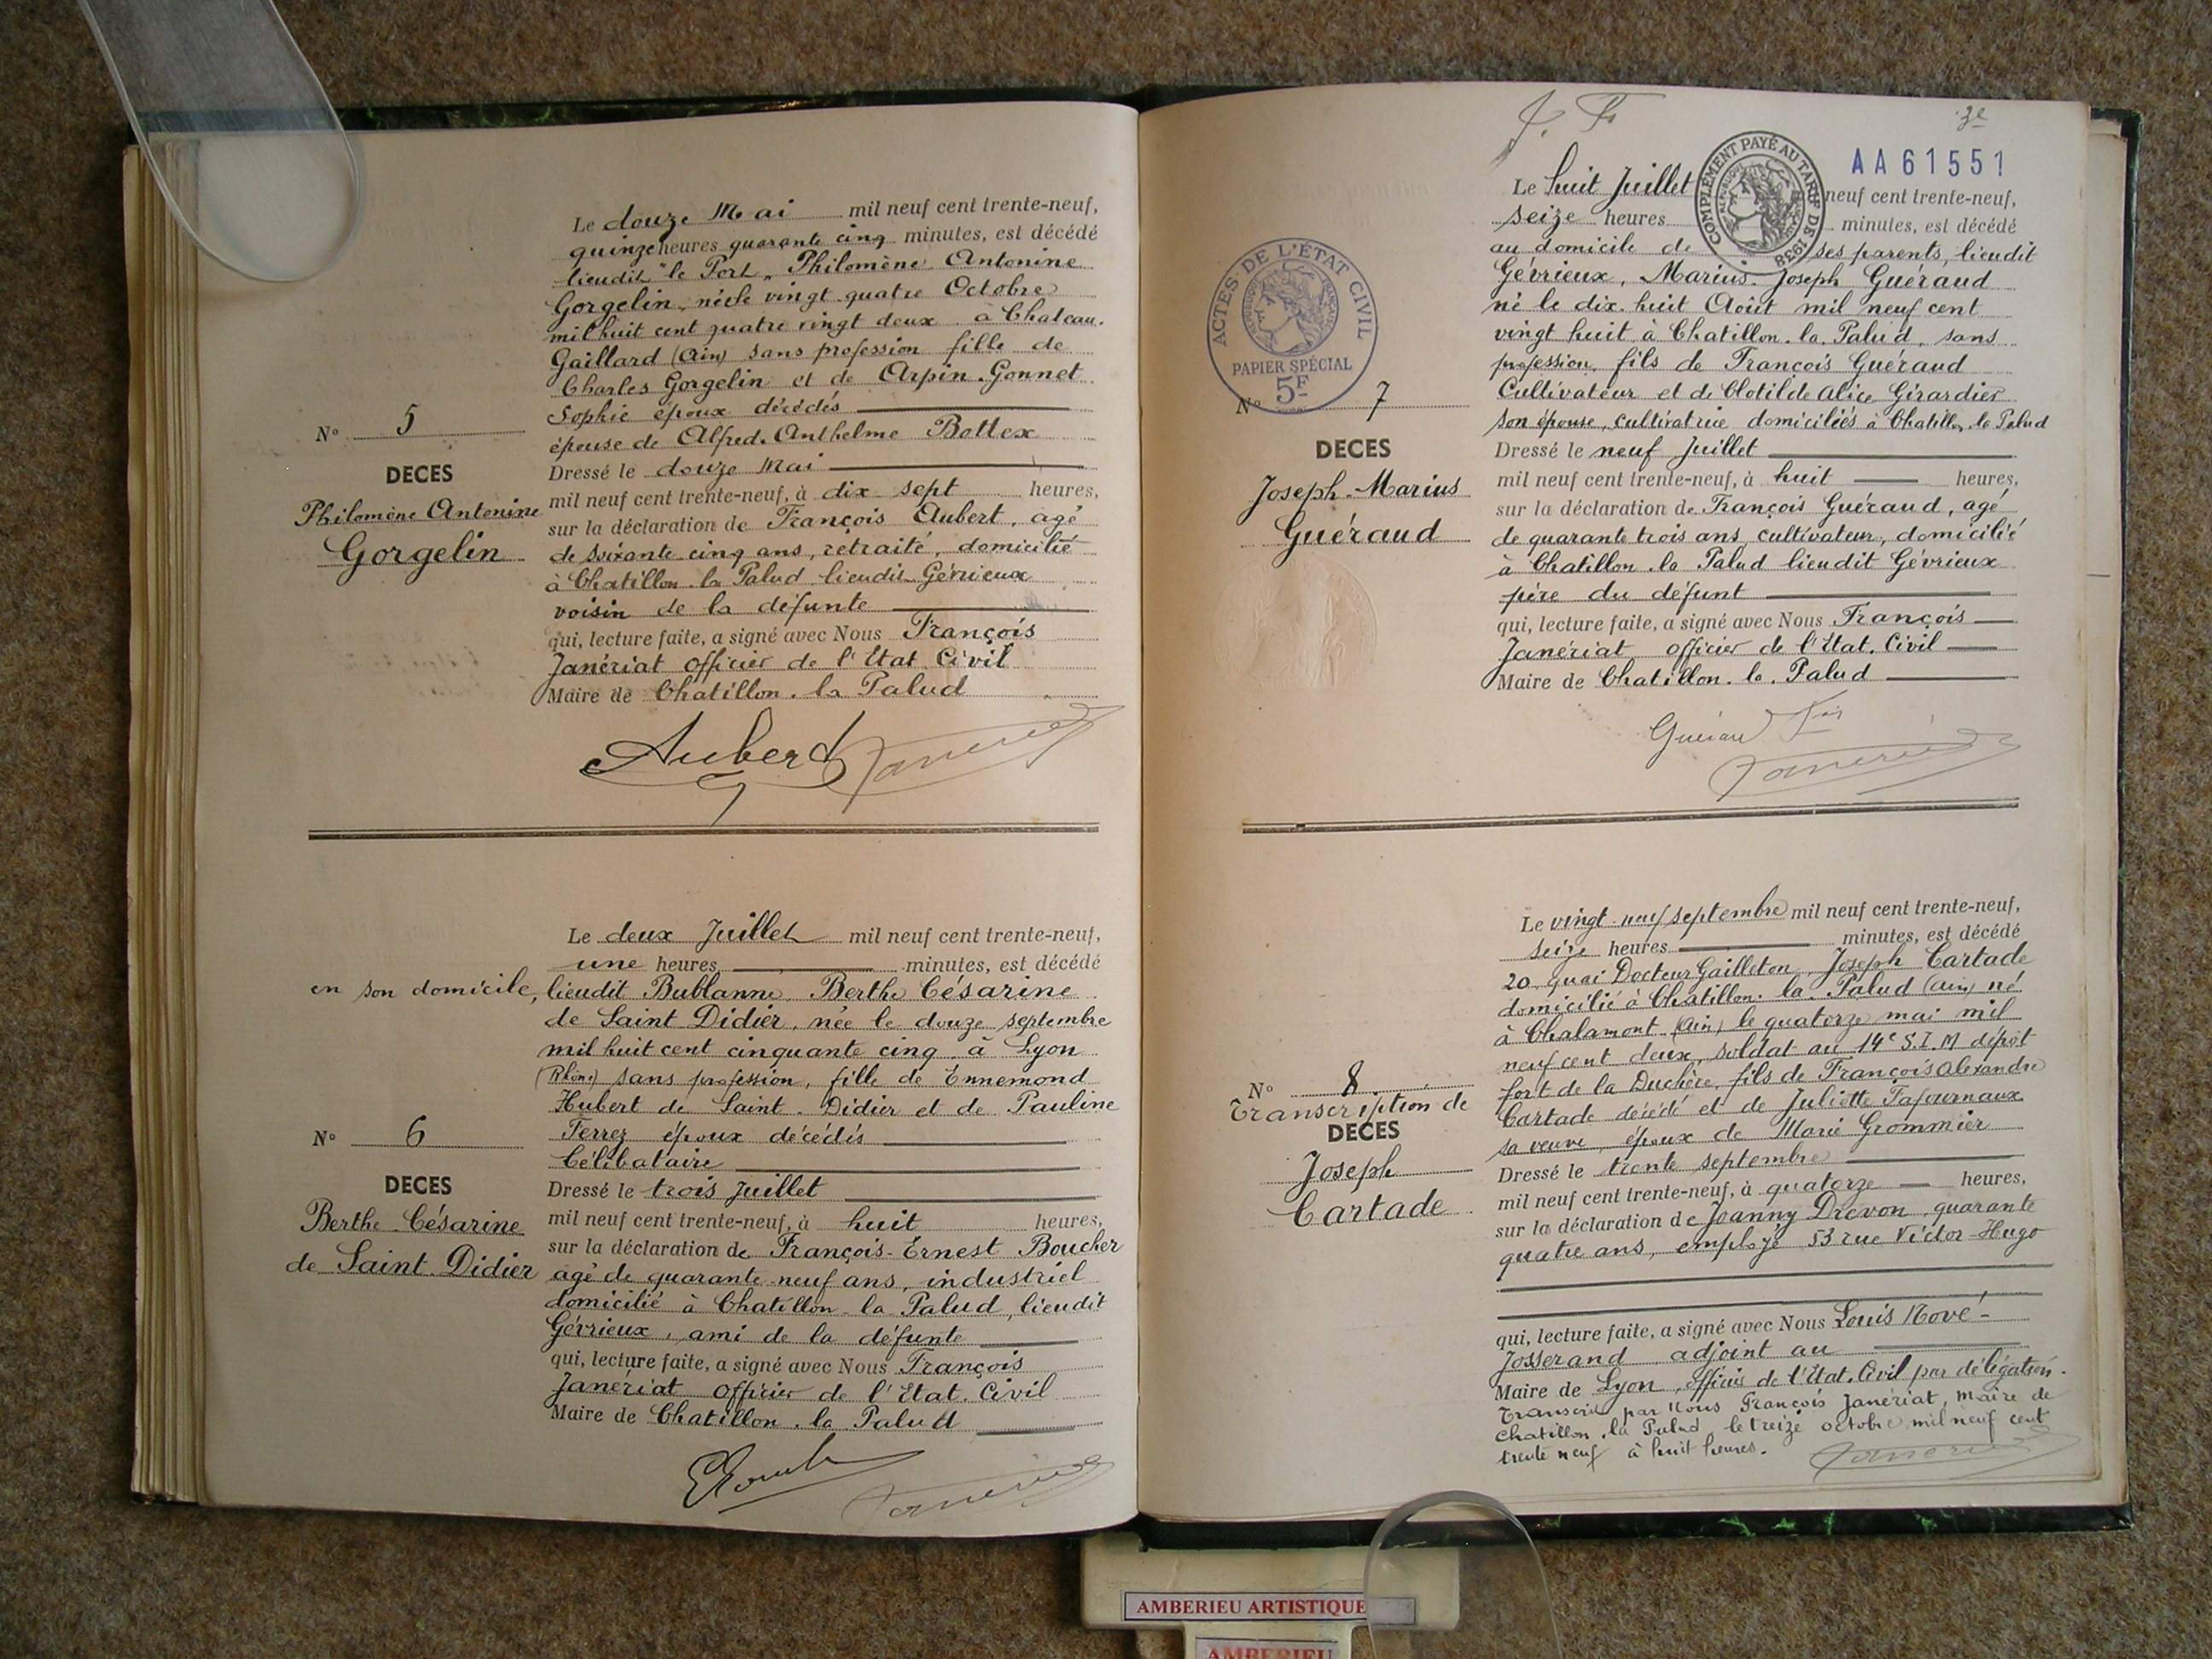 Le douze Mai mil neuf cent trente-neuf,
quinze heures quarante cinq minutes, est décédé
lieudit "le Port" Philomène Antonine
Gorgelin, née le vingt quatre Octobre
mil huit cent quatre vingt deux à Chateau.
Gaillard (Ain) sans profession fille de
Charles Gorgelin et de Arpin-Gonnet
Sophie époux décédés
épouse de Alfred-Anthelme Bottex
N° 5
DECES
Philomène Antonine
Gorgelin
Dressé le douze Mai
mil neuf cent trente-neuf, à dix sept heures,
sur la déclaration de François Aubert, agé
de soixante cinq ans, retraité, domicilié
à Chatillon la Palud lieudit Gévrieux
voisin de la défunte
qui, lecture faite, a signé avec Nous François
Janériat officier de l'Etat Civil
Maire de Chatillon. la Palud
Aubert
Le deux Juillet mil neuf cent trente-neuf,
une heures minutes, est décédé
en son domicile, lieudit Bublanne Berthe Césarine
de Saint Didier, née le douze septembre
mil huit cent cinquante cinq à Lyon
(Rhône) sans profession, fille de Ennemond
Hubert de Saint-Didier et de Pauline
Ferrez époux décédés
Célibataire
N° 6
DECES
Berthe Césarine
de Saint Didier
Dressé le trois Juillet
mil neuf cent trente-neuf, à huit heures,
sur la déclaration de François-Ernest Boucher
agé de quarante neuf ans, industriel
domicilié à Chatillon la Palud, lieudit
Gévrieux, ami de la défunte
qui, lecture faite, a signé avec Nous François
Janériat officier de l'Etat. Civil
Maire de Chatillon. la Palud
3e
AA61551
COMPLÉMENT PAYÉ AU TARIF DE 1938
Le huit Juillet neuf cent trente-neuf,
seize heures minutes, est décédé
au domicile de ses parents, lieudit
Gévrieux, Marius-Joseph Guéraud
né le dix-huit Août mil neuf cent
vingt huit à Chatillon. la. Palud, sans
profession, fils de François Guéraud
Cultivateur et de Clotilde Alice Girardier
son épouse, cultivatrice domiciliés à Chatillon. la Palud
ACTES DE L'ÉTAT CIVIL
PAPIER SPÉCIAL
5F
N° 7
DECES
Joseph-Marius
Guéraud
Dressé le neuf Juillet
mil neuf cent trente-neuf, à huit heures,
sur la déclaration de François Guéraud, agé
de quarante trois ans, cultivateur, domicilié
à Chatillon. la Palud lieudit Gévrieux
père du défunt
qui, lecture faite, a signé avec Nous François
Janériat officier de l'Etat. Civil
Maire de Chatillon. la. Palud
Le vingt-neuf septembre mil neuf cent trente-neuf,
seize heures minutes, est décédé
20 quai Docteur Gailleton, Joseph Cartade
domicilié à Chatillon. la. Palud (Ain) né
à Chalamont (Ain) le quatorze mai mil
neuf cent deux, soldat au 14e S.I.M dépôt
fort de la Duchère, fils de François Alexandre
Cartade décédé et de Juliette Fafournoux
sa veuve, époux de Marie Grommier
N° 8
Transcription de
DECES
Joseph
Cartade
Dressé le trente septembre
mil neuf cent trente-neuf, à quatorze heures,
sur la déclaration de Joanny Drevon, quarante
quatre ans, employé 53 rue Victor-Hugo
qui, lecture faite, a signé avec Nous Louis Nové-
Josserand adjoint au
Maire de Lyon, officier de l'Etat. Civil par délégation.
Transcrit par Nous François Janériat, Maire de
Chatillon. la Palud le treize octobre mil neuf cent
trente neuf à huit heures.
AMBERIEU ARTISTIQUE
AMBERIEU